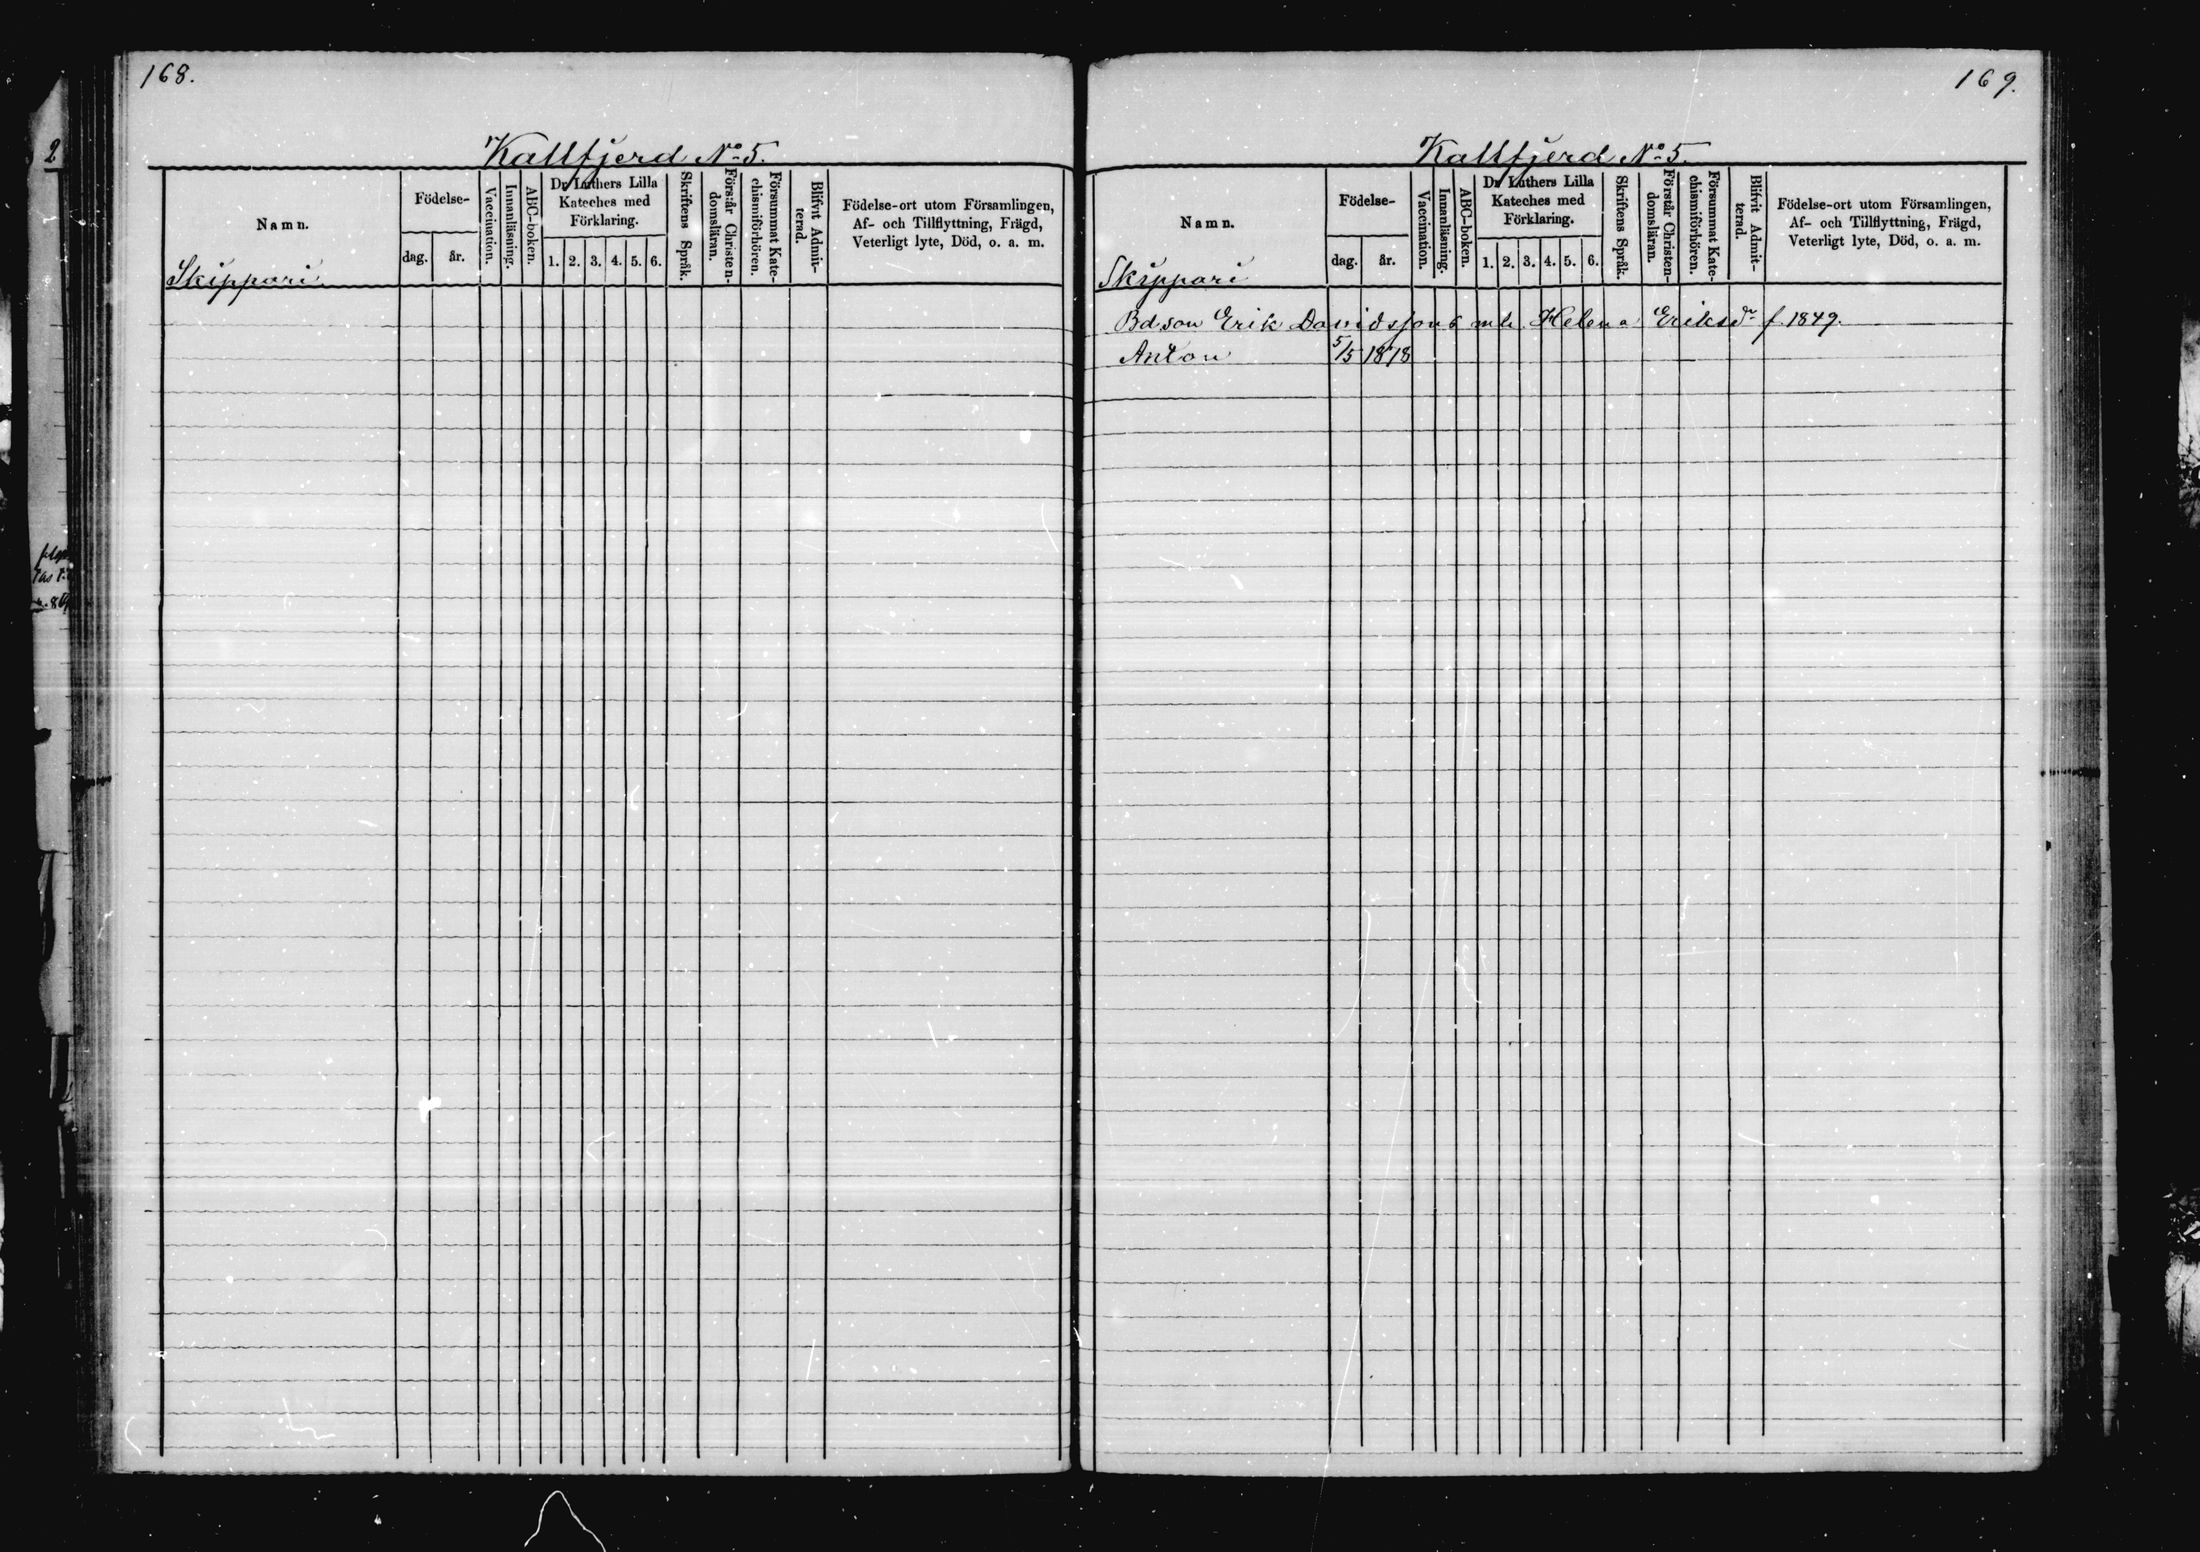 168.
Kallfjerd No 5.
Namn.
Födelse-
dag.
år.
Vaccination.
Innanläsning.
ABC-boken.
Dr Luthers Lilla
Kateches med
Förklaring.
1. 2. 3. 4. 5. 6.
Skriftens Språk.
Förstår Christen-
domsläran.
Försummat Kate-
chismiförhören.
Blifvit Admit-
terad.
Födelse-ort utom Församlingen,
Af- och Tillflyttning, Frägd,
Veterligt lyte, Död, o. a. m.
Skippari
169.
Kallfjerd No 5.
Namn.
Födelse-
dag.
år.
Vaccination.
Innanläsning.
ABC-boken.
Dr Luthers Lilla
Kateches med
Förklaring.
1. 2. 3. 4. 5. 6.
Skriftens Språk.
Förstår Christen-
domsläran.
Försummat Kate-
chismiförhören.
Blifvit Admit-
terad.
Födelse-ort utom Församlingen,
Af- och Tillflyttning, Frägd,
Veterligt lyte, Död, o. a. m.
Skippari
Bdson Erik Davidssons mh. Helena Eriksdr f. 1849.
Anton 5/5 1878
2